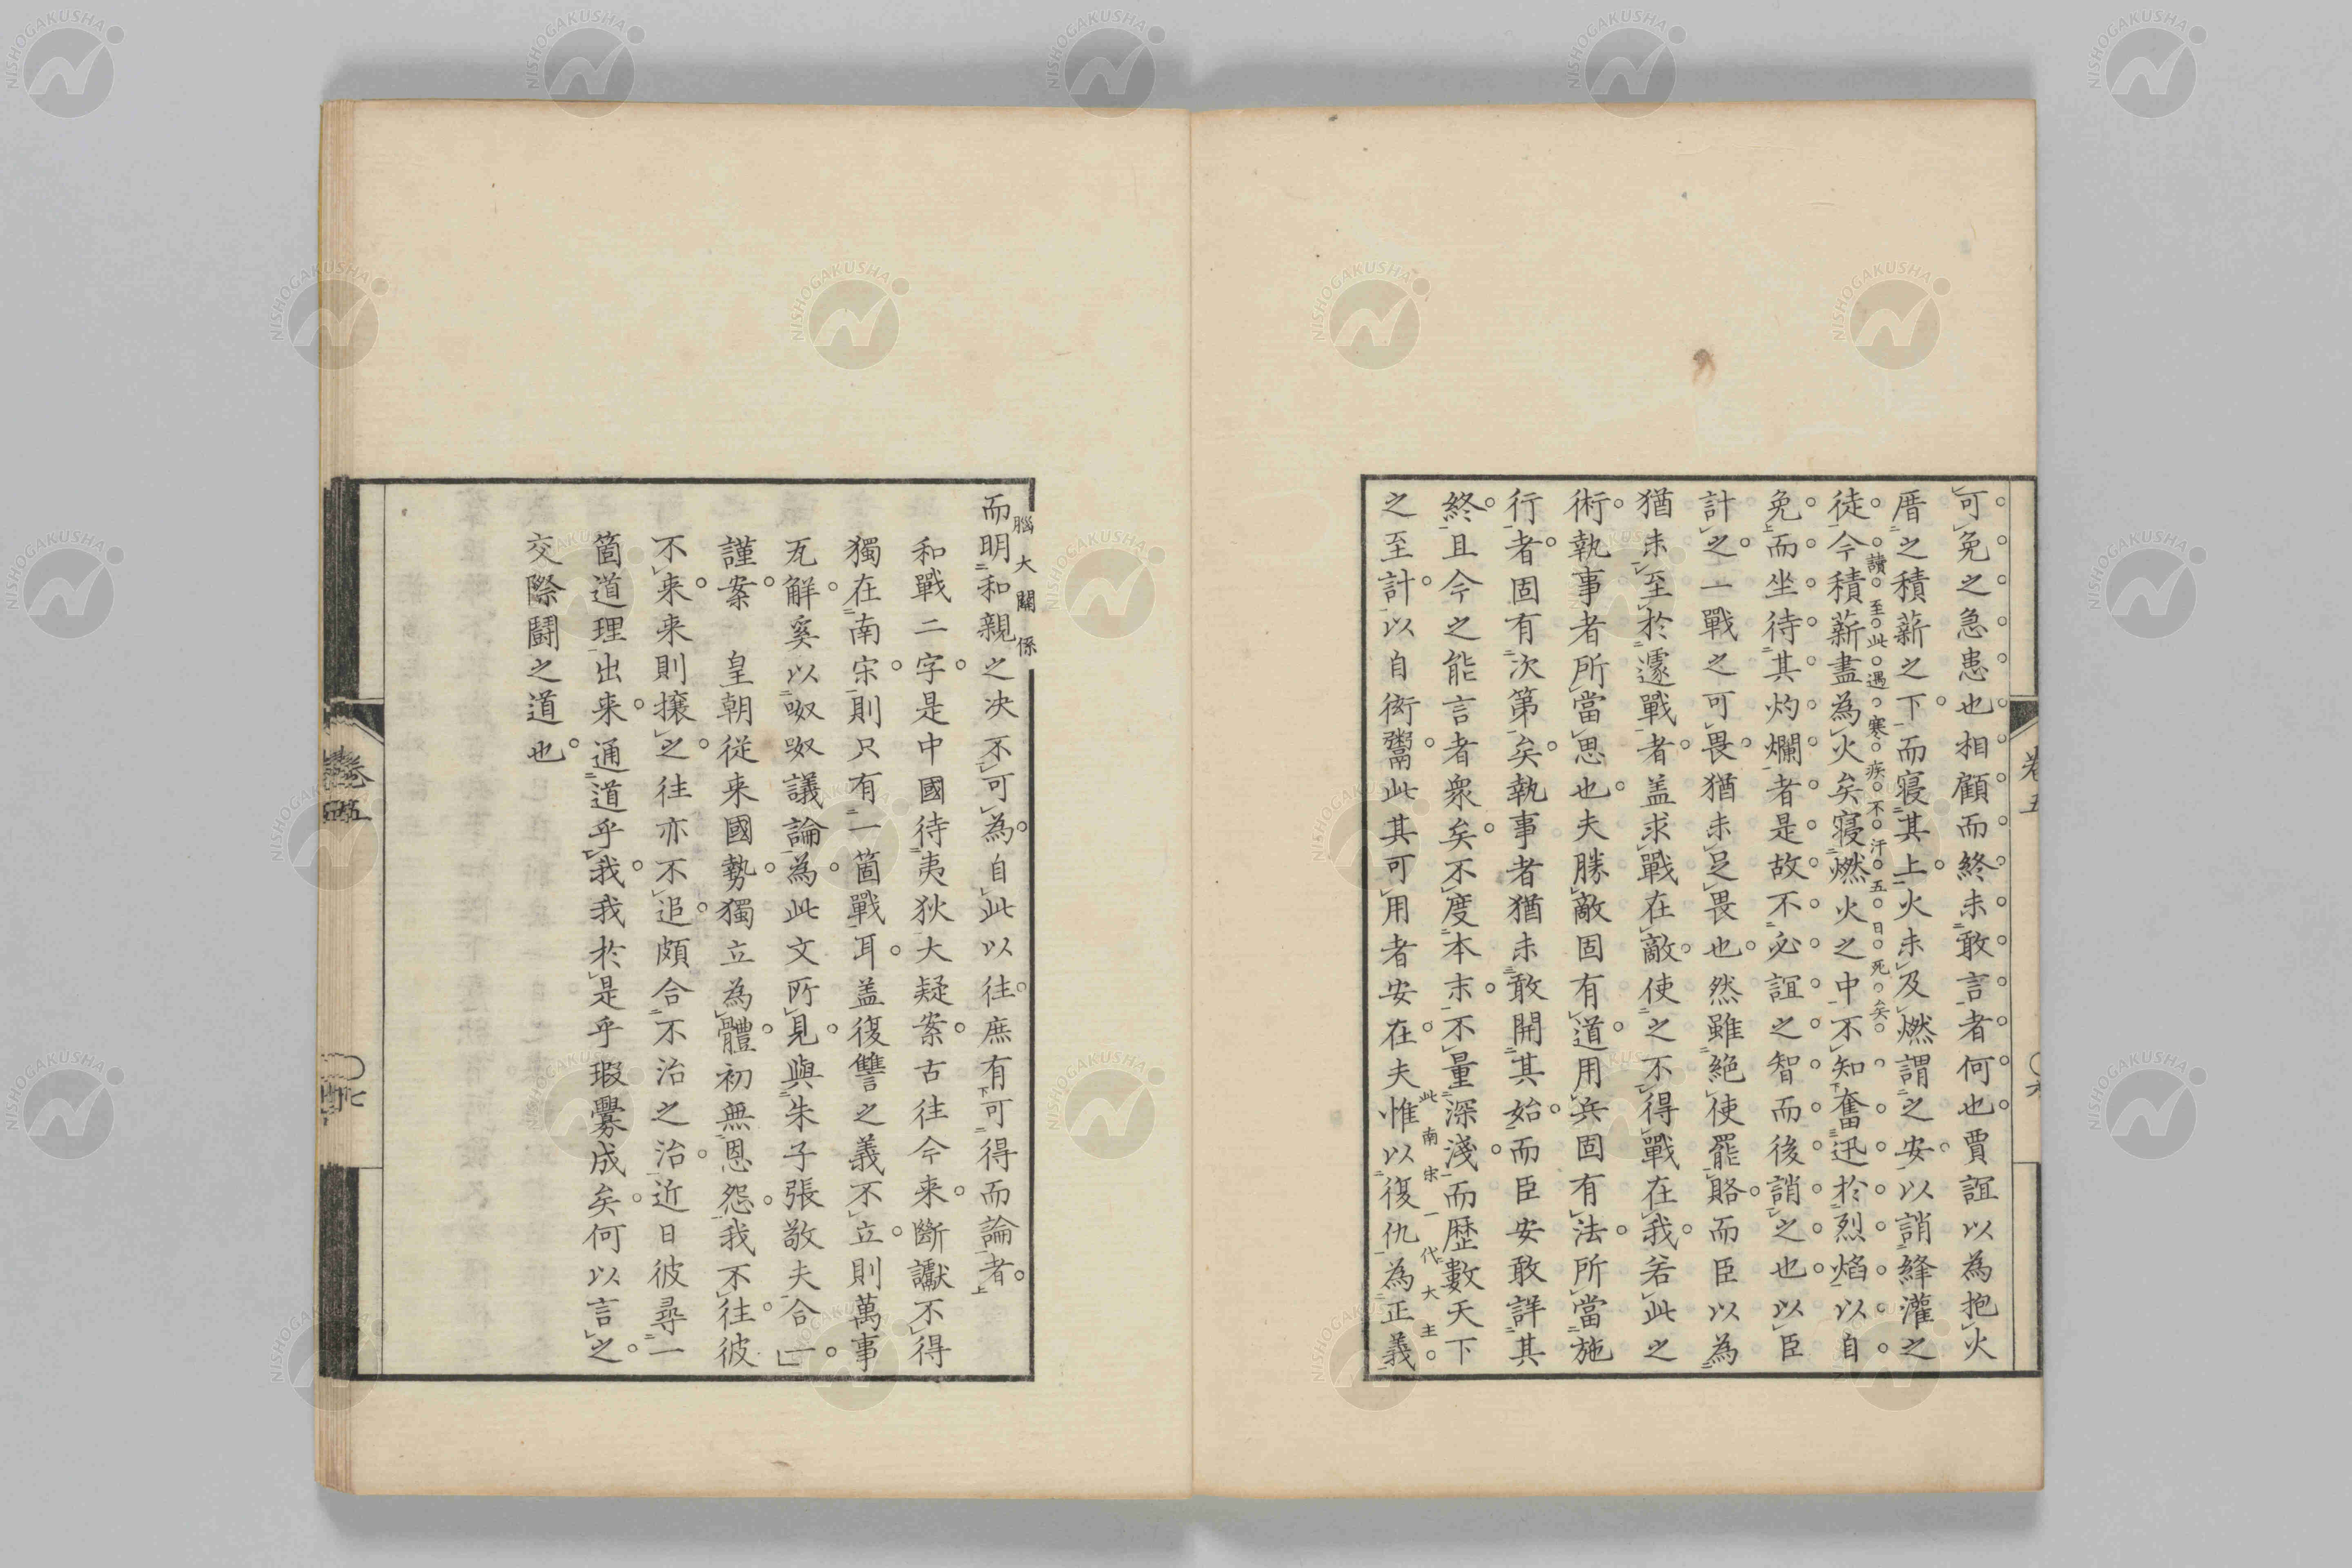 可免之急患也相顧而終未敢言者何也賈誼以為抱火
厝之積薪之下而寝其上火未及燃謂之安以誚絳灌之
徒今積薪盡為火矣寝燃火之中不知奮迅於烈焰以自
讀至此遇寒疾不汗五日死矣
免而坐待其灼爛者是故不必誼之智而後誚之也以臣
計之一戰之可畏猶未足畏也然雖絶使罷賂而臣以為
猶未至於遽戰者盖求戰在敵使之不得戰在我若此之
術執事者所當思也夫勝敵固有道用兵固有法所當施
行者固有次第矣執事者猶未敢開其始而臣安敢詳其
終且今之能言者衆矣不度本末不量深淺而歴數天下
之至計以自衒鬻此其可用者安在夫惟以復仇為正義
此南宋一代大主
而明和親之决不可為自此以往庶有可得而論者
腦大關係
和戰二字是中國待夷狄大疑案古往今来斷讞不得
獨在南宋則只有一箇戰耳盖復讐之義不立則萬事
瓦解奚以呶呶議論為此文所見與朱子張敬夫合一
謹案 皇朝従来國勢獨立為體初無恩怨我不往彼
不来来則攘之往亦不追頗合不治之治近日彼尋一
箇道理出来通道乎我我於是乎瑕釁成矣何以言之
交際鬪之道也
卷五
卷五